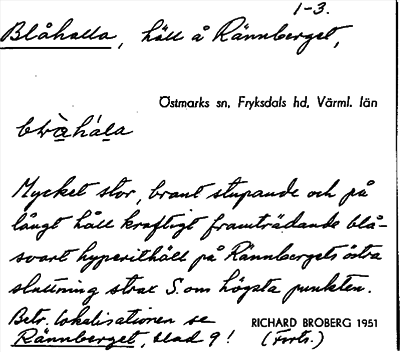 1-3.
Blåhalla, häll å Rännberget,
Östmarks sn, Fryksdals hd, Värml. län
blàhála
Mycket stor, brant stupande och på
långt håll kraftigt framträdande blå-
svart hyperithäll på Rännbergets östra
sluttning strax S. om högsta punkten.
Betr. lokalisationen se
Rännberget, blad 9!
RICHARD BROBERG 1951
(Forts.)